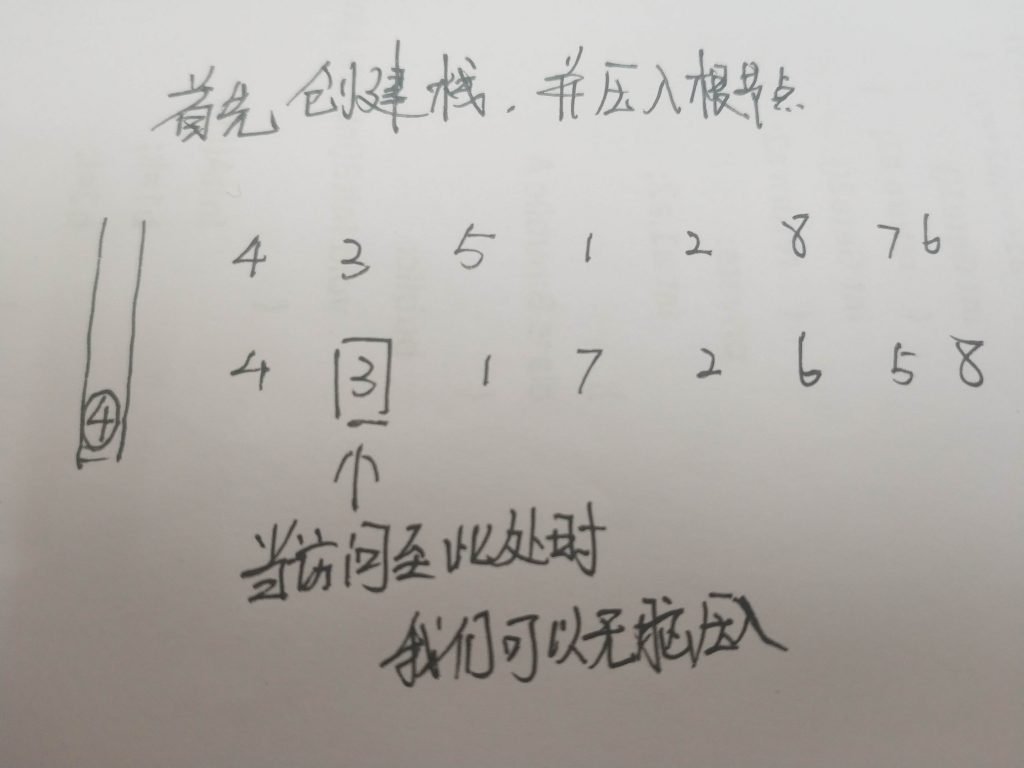 首先创建栈，并压入根节点
4 3 5 1 2 8 7 6
4 3 1 7 2 6 5 8
④
当访问至此处时
我们可以无脑压入